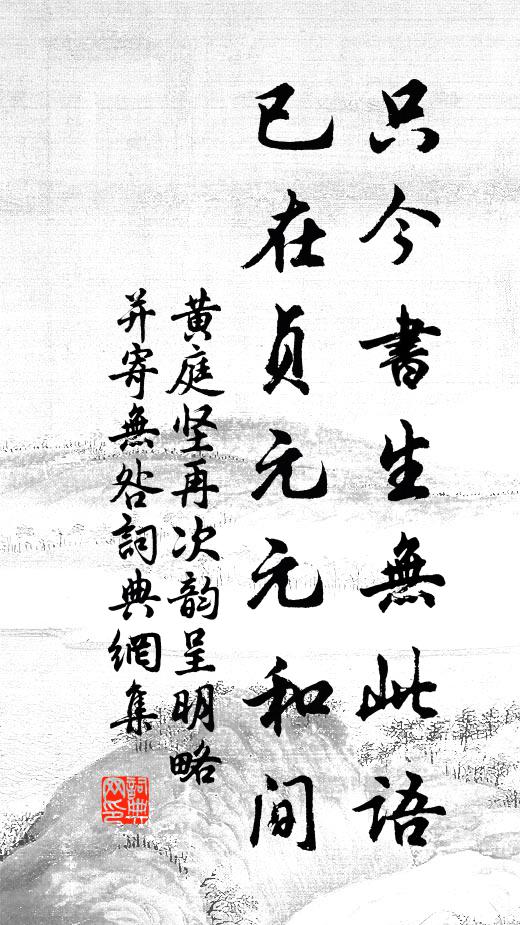 只今書生無此语
已在贞元元和间
黄庭坚再次韵呈明略
并寄無咎詞典網集
詞典
网印